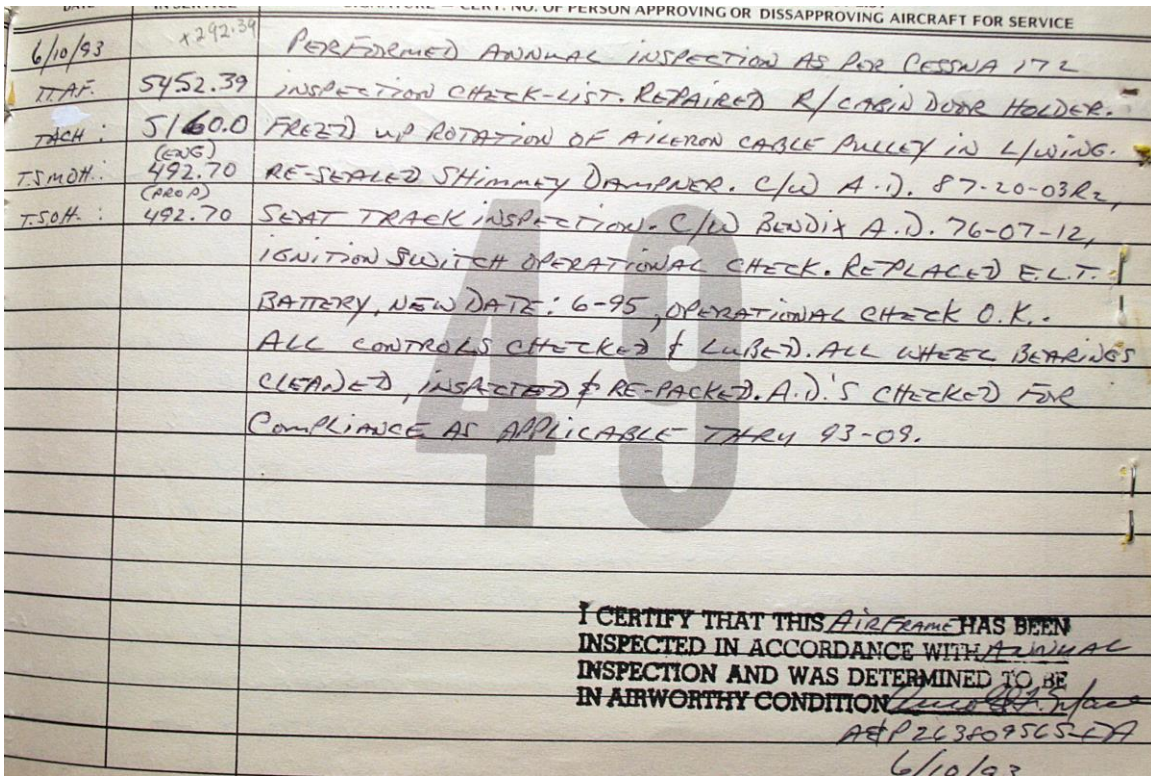 OF PERSON APPROVING OR DISSAPPROVING AIRCRAFT FOR SERVICE
6/10/93 +292.39 PERFORMED ANNUAL INSPECTION AS PER CESSNA 172
TT.AF. 5452.39 INSPECTION CHECK-LIST. REPAIRED R/CABIN DOOR HOLDER.
TACH: 5160.0 FREED UP ROTATION OF AILERON CABLE PULLEY IN L/WING.
(ENG)
T.SMOH.: 492.70 RE-SEALED SHIMMEY DAMPNER. C/W A.D. 87-20-03R2,
(PROP)
T.SOH.: 492.70 SEAT TRACK INSPECTION. C/W BENDIX A.D. 76-07-12,
IGNITION SWITCH OPERATIONAL CHECK. REPLACED E.L.T.
BATTERY, NEW DATE: 6-95, OPERATIONAL CHECK O.K..
ALL CONTROLS CHECKED & LUBED. ALL WHEEL BEARINGS
CLEANED, INSPECTED & RE-PACKED. A.D.'S CHECKED FOR
COMPLIANCE AS APPLICABLE THRU 93-09.
49
I CERTIFY THAT THIS AIRFRAME HAS BEEN
INSPECTED IN ACCORDANCE WITH ANNUAL
INSPECTION AND WAS DETERMINED TO BE
IN AIRWORTHY CONDITION
A&P263809565-EA
6/10/93